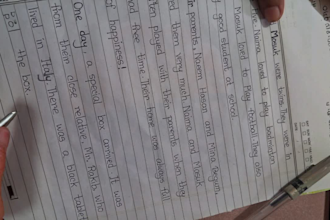 Masuk were twins. They were in
Naima loved to play badminton
Masuk loved to play football. They also
good student at school.
parents, Naeem Hasan and Nina Begum,
them very much. Naima and Masuk
played with their parents when they
had free time. Their home was always full
of happiness!
One day, a special box arrived. It was
from their close relative, Mr. Rakib who
lived in Italy. There was a black tablet
the box.